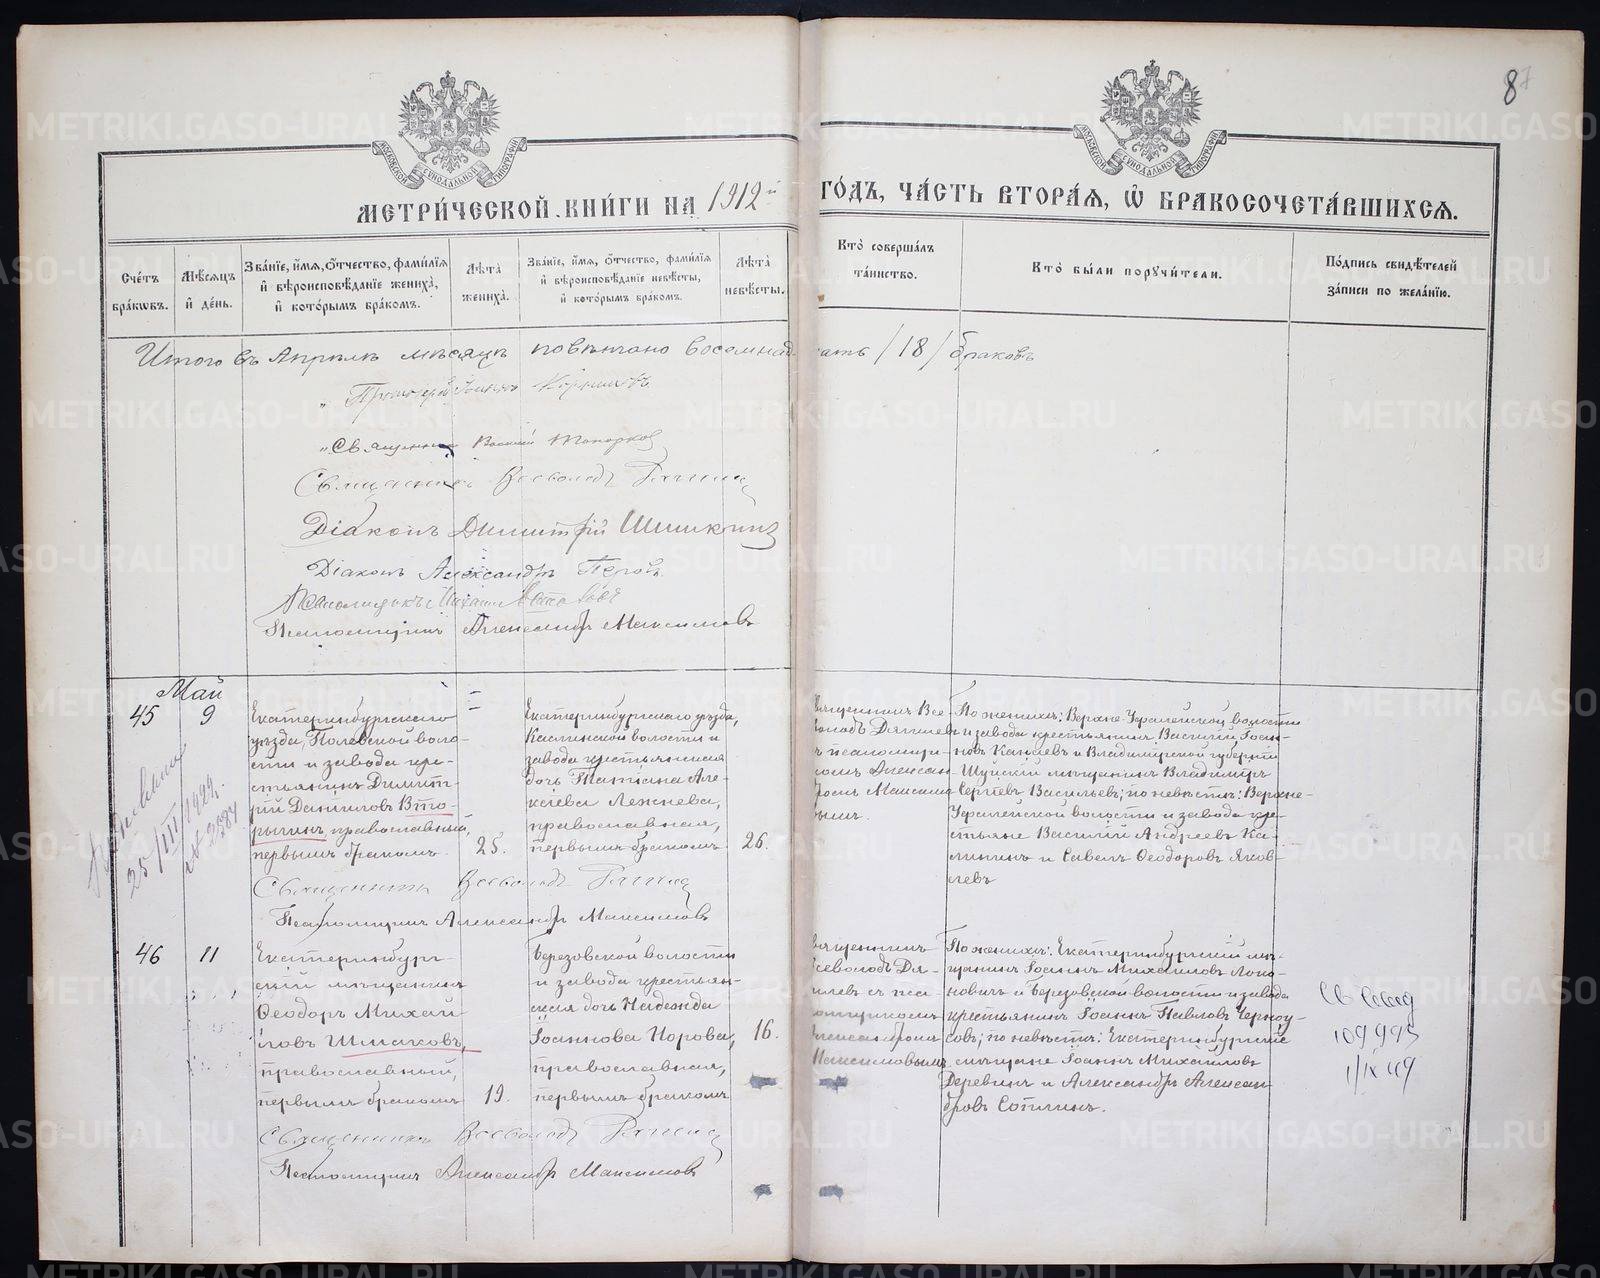 8
МОСКОВСКОЙ СѴНОДАЛЬНОЙ ТИПОГРАФІИ
МОСКОВСКОЙ СѴНОДАЛЬНОЙ ТИПОГРАФІИ
МЕТРИ́ЧЕСКОЙ КНИ́ГИ НА 1912й ГО́ДЪ, ЧА́СТЬ ВТОРА́Я, Ѡ҆ БРАКОСОЧЕТА́ВШИХСЯ.
Сче́тъ бра́кѡвъ.
Мѣ́сяцъ и҆ де́нь.
Зва́нїе, и҆́мя, о҆́тчество, фами́лїя и҆ вѣроисповѣ́данїе жениха̀, и҆ кото́рымъ бра́комъ.
Лѣ́та жениха̀.
Зва́нїе, и҆́мя, о҆́тчество, фами́лїя и҆ вѣроисповѣ́данїе невѣ́сты, и҆ кото́рымъ бра́комъ.
Лѣ́та невѣ́сты.
Кто̀ соверша́лъ та́инство.
Кто̀ бы́ли порꙋчи́тели.
По́дпись свидѣ́телей за́писи по жела́нїю.
Итого въ Апрѣлѣ мѣсяцѣ повѣнчано восемнад- цать /18/ браковъ
Протоіерей Іоаннъ
Священникъ Василій Топорков
Священникъ Всеволодъ
Діаконъ Димитрій Шишкинъ
Діаконъ Александръ Перовъ
Псаломщикъ Михаилъ
Псаломщикъ Александръ Максимовъ
Май
45
9
Екатеринбургскаго
уѣзда, Полевской воло-
сти и завода кре-
стьянинъ Димит-
рій Даніиловъ Вто-
рыгинъ, православный,
первымъ бракомъ.
25.
Екатеринбургскаго уѣзда,
Каслинской волости и
завода крестьянская
дочь Татіана Але-
ксіева Лежнева,
православная,
первымъ бракомъ
26.
Священникъ Все-
володъ Дягилевъ
съ псаломщи-
комъ Алексан
дромъ Максимо
вымъ.
По женихѣ: Верхне-Уфалейской волости
и завода крестьянинъ Василій Іоан-
новъ Канаевъ и Владимірской губерніи
Шуйскій мѣщанинъ Владиміръ
Сергіевъ Васильевъ; по невѣстѣ: Верхне-
Уфалейской волости и завода кре-
стьяне Василій Андреевъ Ка-
лининъ и Савелъ Ѳеодоровъ Яков-
левъ
25/III/1922.
№ 2584
Священникъ Всеволодъ
Псаломщикъ Александръ Максимовъ
46
11
Екатеринбург-
скій мѣщанинъ
Ѳеодоръ Михай-
ловъ Шмаковъ,
православный,
первымъ бракомъ
19.
Березовской волости
и завода крестьян-
ская дочь Надежда
Іоаннова Порова,
православная,
первымъ бракомъ
16.
Священникъ
Всеволодъ Дя-
гилевъ съ пса
ломщикомъ
Александромъ
Максимовымъ
По женихѣ: Екатеринбургскій мѣ-
щанинъ Іоаннъ Михаиловъ Лоно-
новичъ и Березовской волости и завода
крестьянинъ Іоаннъ Павловъ Черноу-
совъ; по невѣстѣ: Екатеринбургскіе
мѣщане Іоаннъ Михаиловъ
Деревинъ и Александръ Алексан
дровъ Сотнинъ.
109993
1/IX 49
Священникъ Всеволодъ
Псаломщикъ Александръ Максимовъ
METRIKI.GASO-URAL.RU